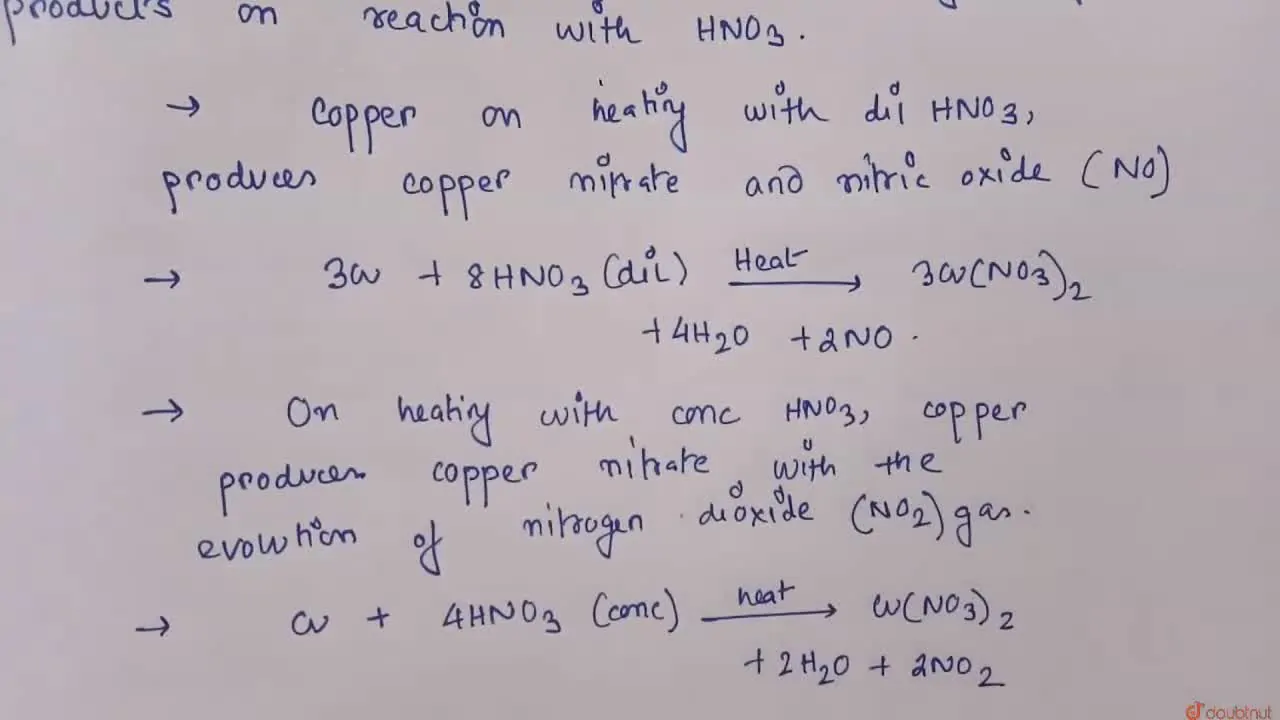 products on reaction with HNO3.
→ Copper on heating with dil HNO3,
produces copper nitrate and nitric oxide (NO)
→ 3Cu + 8HNO3 (dil) Heat→ 3Cu(NO3)2
+ 4H2O + 2NO.
→ On heating with conc HNO3, copper
produces copper nitrate with the
evolution of nitrogen dioxide (NO2) gas.
→ Cu + 4HNO3 (conc) heat→ Cu(NO3)2
+ 2H2O + 2NO2
doubtnut